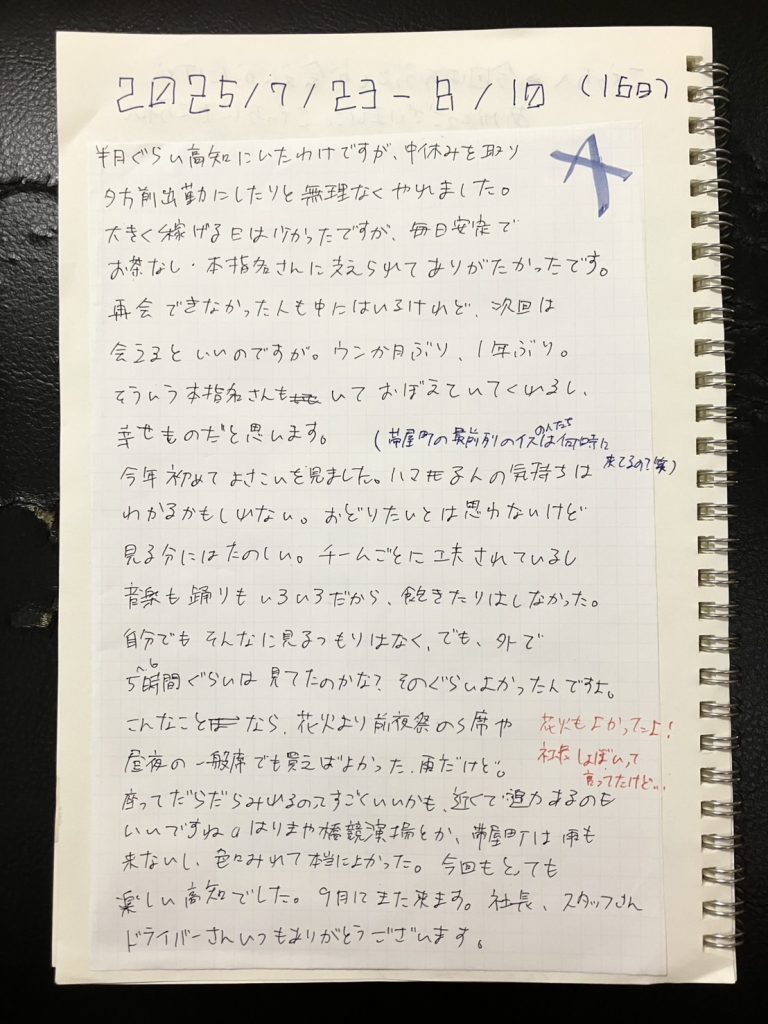 2025/7/23-8/10 (16日)
半月ぐらい高知にいたわけですが、中休みを取り
夕方前出勤にしたりと無理なくやれました。
大きく稼げる日はなかったですが、毎日安定で
お茶なし・本指名さんに支えられてありがたかったです。
再会できなかった人も中にはいるけれど、次回は
会えるといいのですが。ウンか月ぶり、1年ぶり。
そういう本指名さんもいておぼえていてくれるし、
幸せものだと思います。
(帯屋町の最前列のイスの人たちは何時に
来てるの?笑)
今年初めてよさこいを見ました。ハマるんの気持ちは
わかるかもしれない。おどりたいとは思わないけど
見る分にはたのしい。チームごとに工夫されているし
音楽も踊りもいろいろだから、飽きたりはしなかった。
自分でもそんなに見るつもりはなく、でも、外で
5~6時間ぐらいは見てたのかな?そのぐらいよかったんですよ。
こんなことなら、花火より前夜祭のS席や
昼夜の一般席でも買えばよかった、雨だけど。
花火もよかったよ!
社長しょぼいって
言ってたけど…
座ってだらだらみれるのってすごくいいかも、近くで迫力あるのも
いいですね。はりまや橋競演場とか、帯屋町は雨も
来ないし、色々みれて本当によかった。今回もとっても
楽しい高知でした。9月にまた来ます。社長、スタッフさん
ドライバーさんいつもありがとうございます。